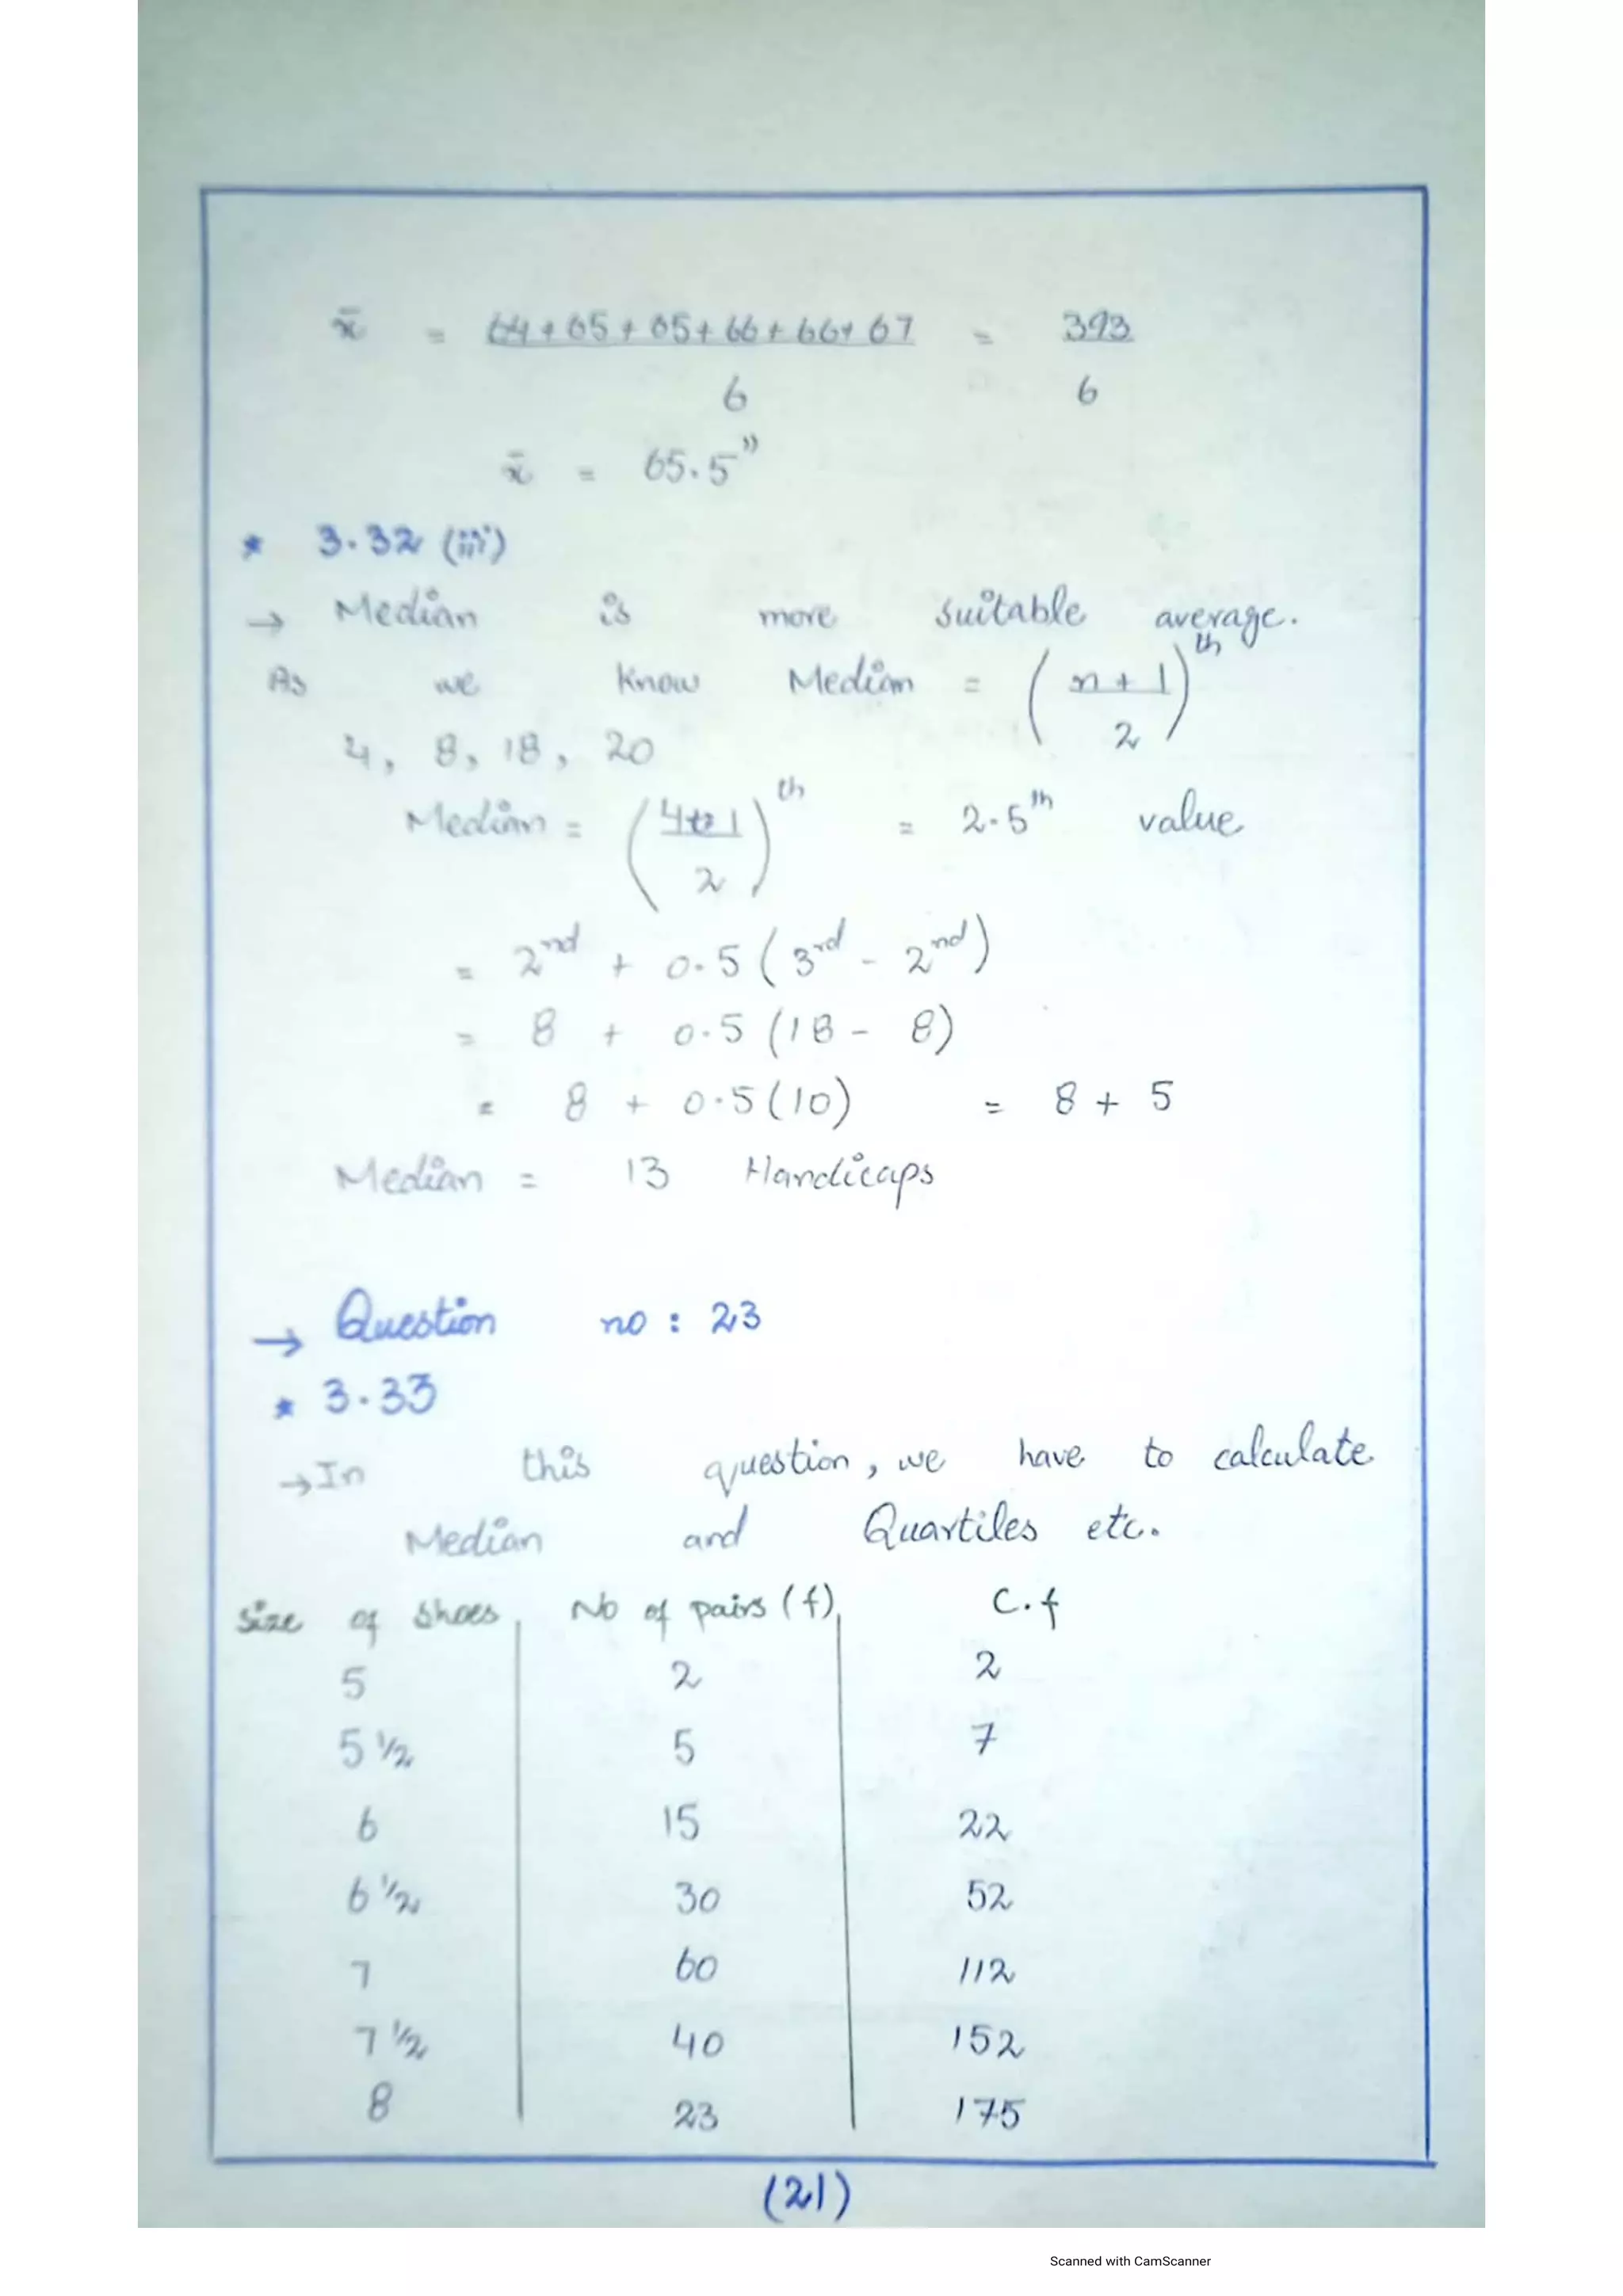 x̄ = 64 + 65 + 65 + 66 + 66 + 67 = 393
6 6
x̄ = 65.5"
* 3.32 (iii)
→ Median is more suitable average.
As we know Median = (n + 1 / 2)th
4, 8, 18, 20
Median = (4+1 / 2)th = 2.5th value
= 2nd + 0.5 (3rd - 2nd)
= 8 + 0.5 (18 - 8)
= 8 + 0.5 (10) = 8 + 5
Median = 13 Handicaps
→ Question no : 23
* 3.33
→ In this question, we have to calculate
Median and Quartiles etc.
Size of shoes No of pairs (f) C.f
5 2 2
5 1/2 5 7
6 15 22
6 1/2 30 52
7 60 112
7 1/2 40 152
8 23 175
(21)
Scanned with CamScanner